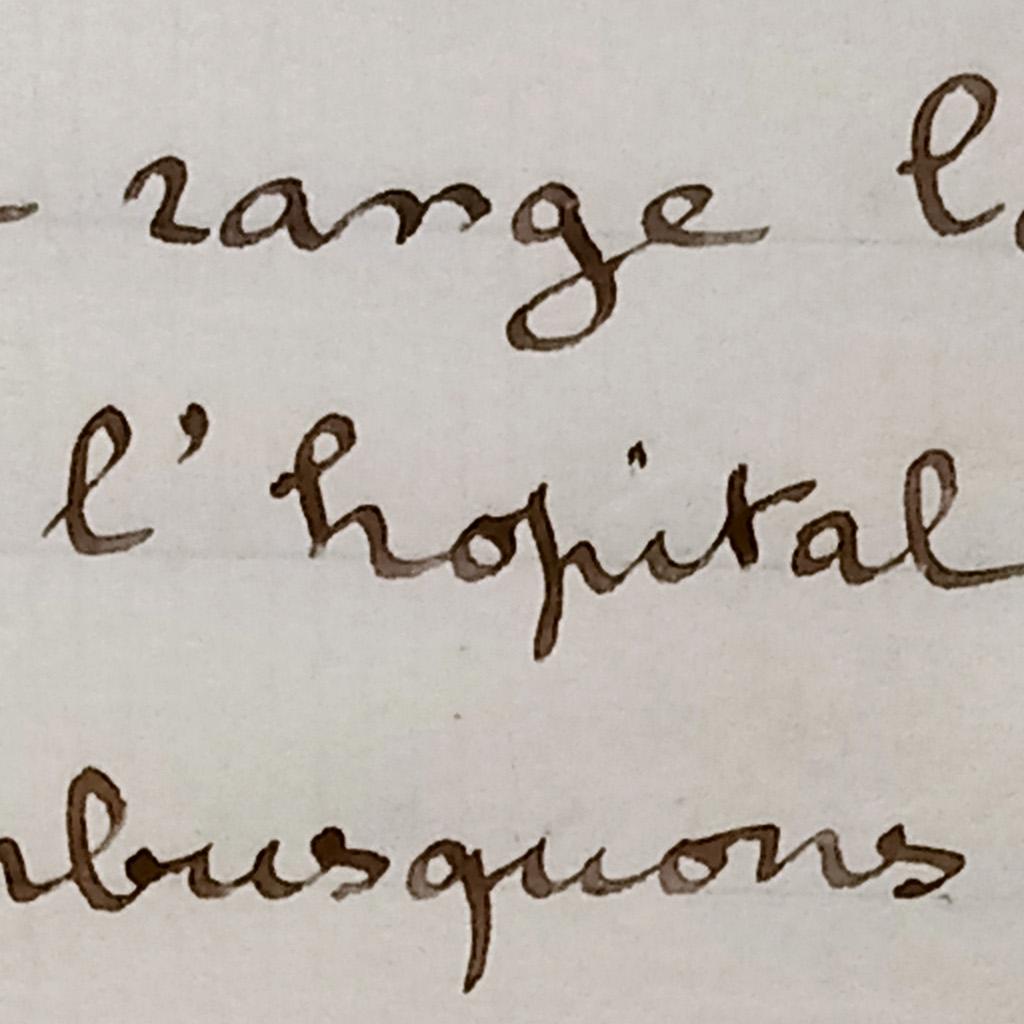 range
l'hopital
mbusquons